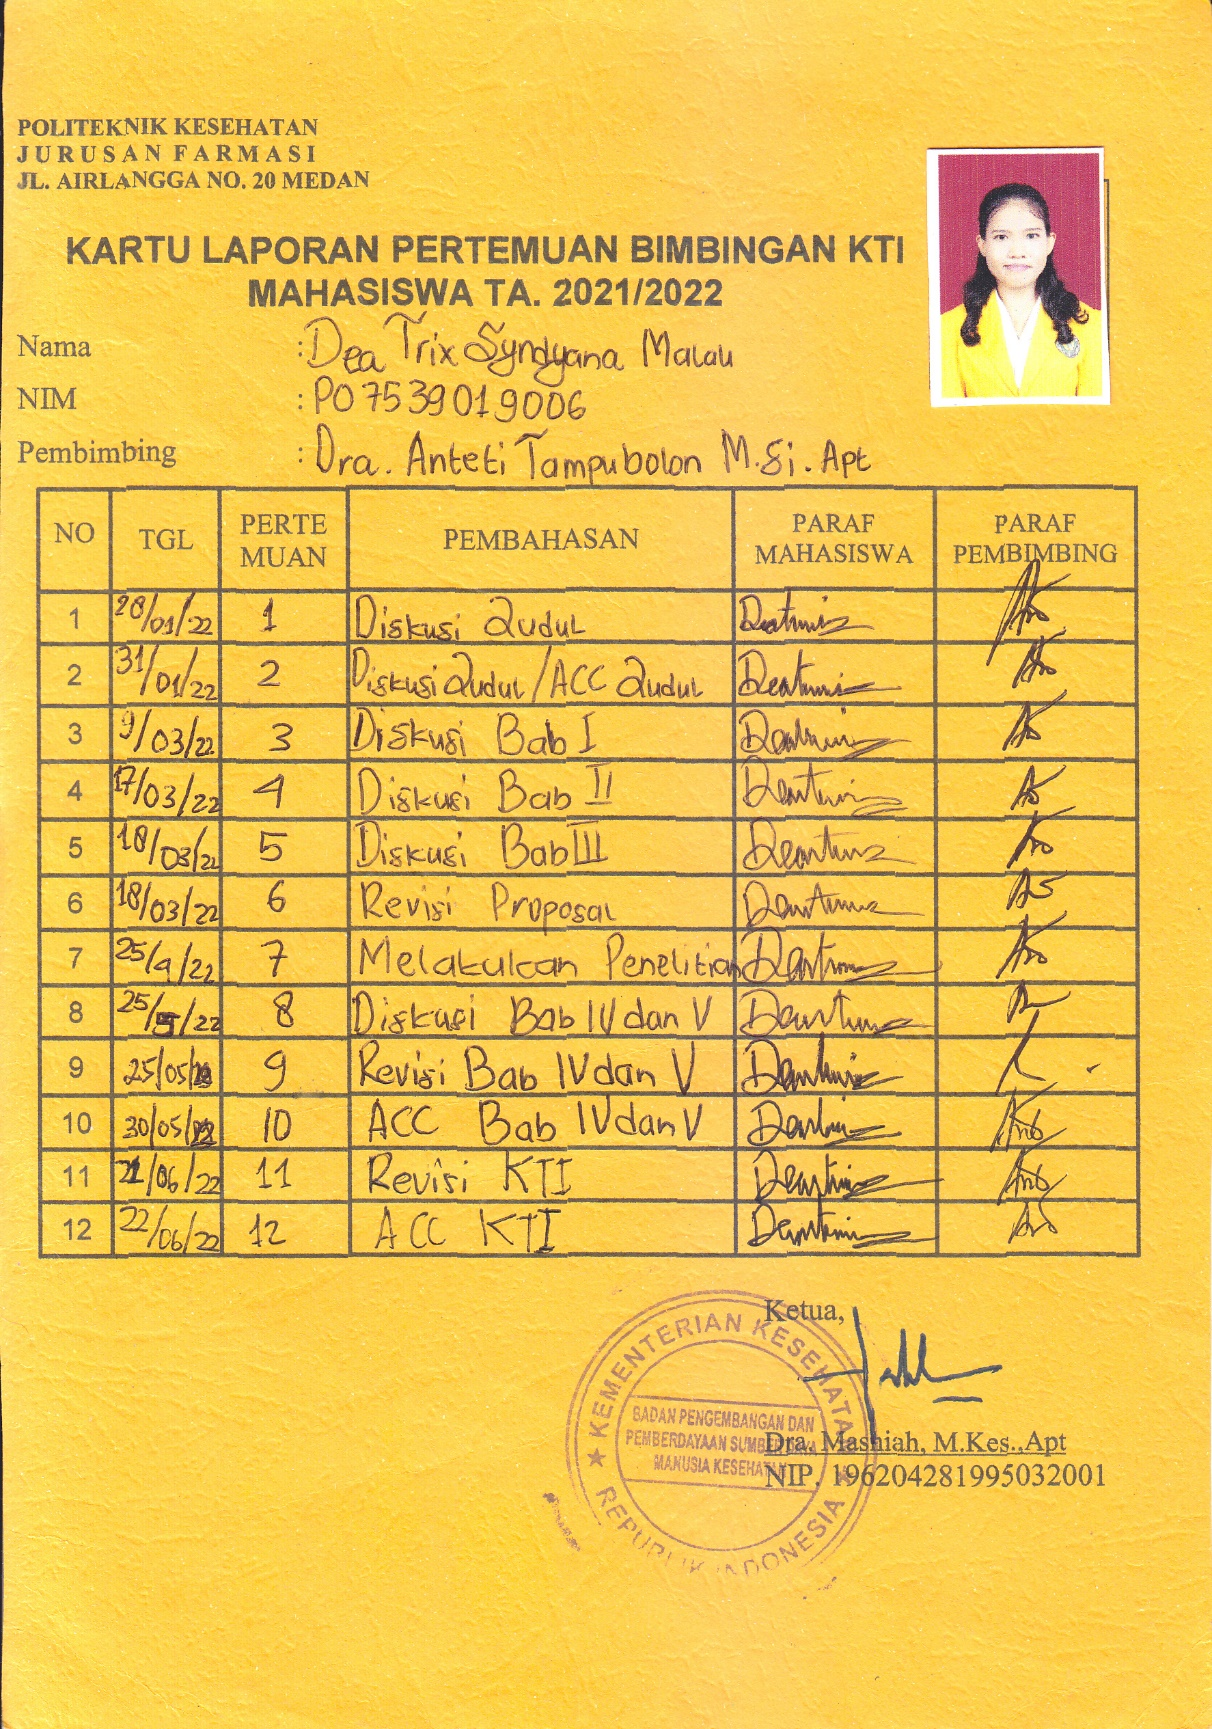 POLITEKNIK KESEHATAN
JURUSAN FARMASI
JL. AIRLANGGA NO. 20 MEDAN
KARTU LAPORAN PERTEMUAN BIMBINGAN KTI
MAHASISWA TA. 2021/2022
Nama : Dea Trix Syndyana Malau
NIM : P07539019006
Pembimbing : Dra. Anteti Tampubolon M.Si. Apt
NO TGL PERTE MUAN PEMBAHASAN PARAF MAHASISWA PARAF PEMBIMBING
1 28/01/22 1 Diskusi Judul
2 31/01/22 2 Diskusi Judul/ACC Judul
3 9/03/22 3 Diskusi Bab I
4 17/03/22 4 Diskusi Bab II
5 18/03/22 5 Diskusi Bab III
6 18/03/22 6 Revisi Proposal
7 25/4/22 7 Melakukan Penelitian
8 25/5/22 8 Diskusi Bab IV dan V
9 25/05/22 9 Revisi Bab IV dan V
10 30/05/22 10 ACC Bab IV dan V
11 21/06/22 11 Revisi KTI
12 22/06/22 12 ACC KTI
Ketua,
KEMENTERIAN KESEHATAN
BADAN PENGEMBANGAN DAN
PEMBERDAYAAN SUMBER DAYA
MANUSIA KESEHATAN
REPUBLIK INDONESIA
Dra. Masniah, M.Kes.,Apt
NIP. 196204281995032001